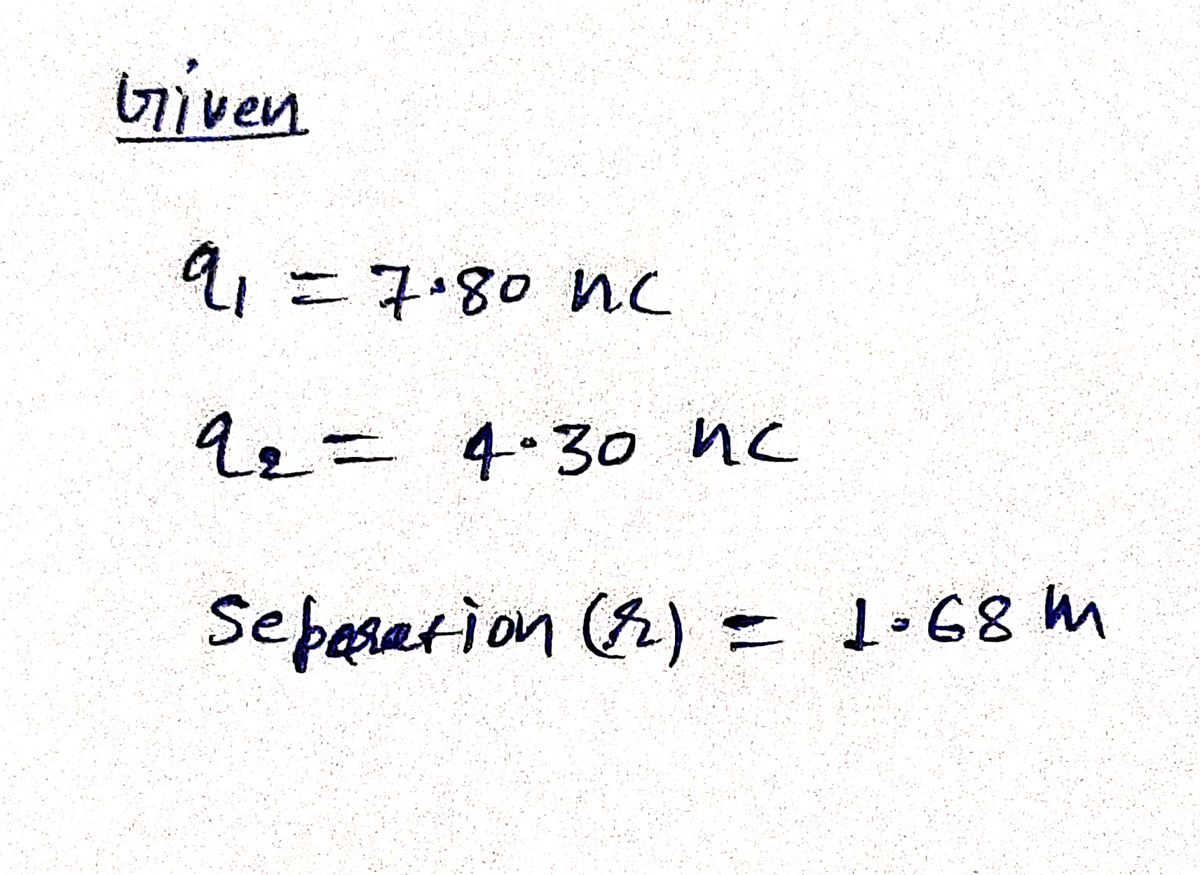 Given
q₁ = 7.80 nc
q₂ = 4.30 nc
Separation (r) = 1.68 m